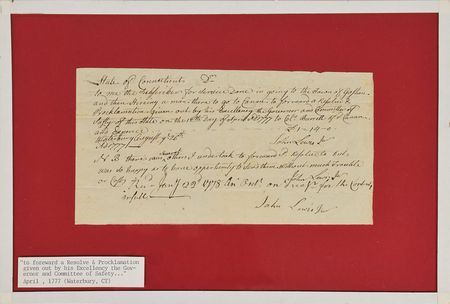 State of Connecticut Dr
to me the Subscriber for Service done in going to the town of Goshen
and then Hireing a man there to go to Canan to forward a Resolve &
Proclamation Given out by his Excellency the Governor and Committee of
Safty of this State on the 18th Day of April AD 1777 to Col. Burrall of Canan
and Expence
Waterbury August ye 26th
AD 1777
£1-14-0
John Lewis Jr
N B there was others I undertook to forward Resolves to but
was so happy as to have oppertunity to send them without much Trouble
or Cost
John Lewis Jr
Recd Jany 29th 1778 an Ordr on Treasr for the Contents
in full
John Lewis Jr
"to foreward a Resolve & Procklamation
given out by his Excellency the Gov-
ernor and Committee of Safety..."
April , 1777 (Waterbury, CT)